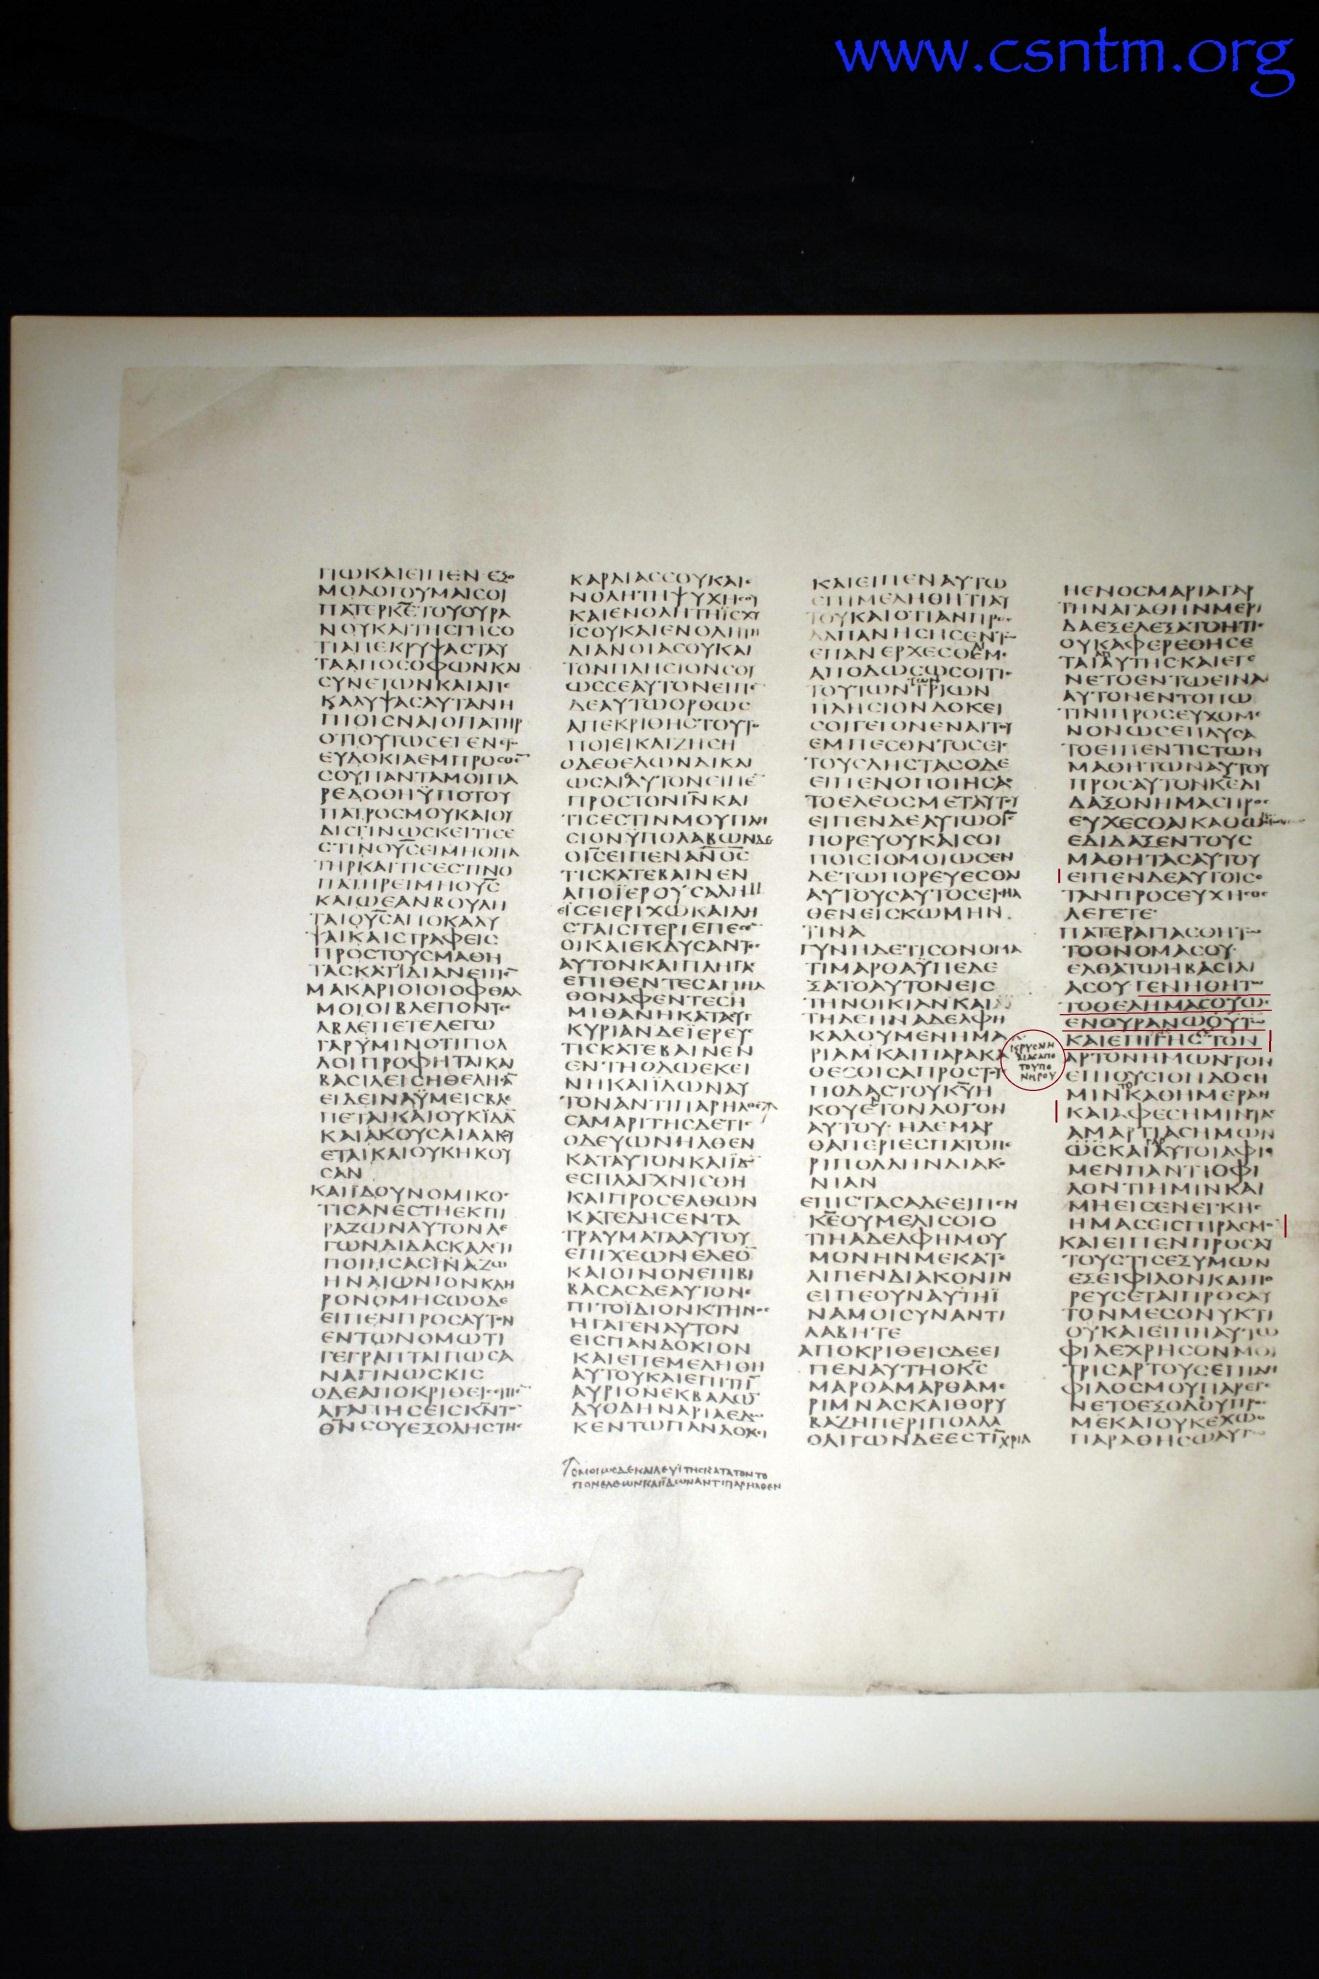 www.csntm.org
ΠΩΚΑΙΕΙΠΕΝΕΞΟ
ΜΟΛΟΓΟΥΜΑΙCΟΙ
ΠΑΤΕΡΚΕΤΟΥΟΥΡΑ
ΝΟΥΚΑΙΤΗCΓΗCΟ
ΤΙΑΠΕΚΡΥΨΑCΤΑΥ
ΤΑΑΠΟCΟΦΩΝΚΑΙ
CΥΝΕΤΩΝΚΑΙΑΠΕ
ΚΑΛΥΨΑCΑΥΤΑΝΗ
ΠΙΟΙCΝΑΙΟΠΑΤΗΡ
ΟΤΙΟΥΤΩCΕΓΕΝΕΤΟ
ΕΥΔΟΚΙΑΕΜΠΡΟCΘΕ
CΟΥΠΑΝΤΑΜΟΙΠΑ
ΡΕΔΟΘΗΫΠΟΤΟΥ
ΠΑΤΡΟCΜΟΥΚΑΙΟΥ
ΔΙCΓΙΝΩCΚΕΙΤΙCΕ
CΤΙΝΟΥCΕΙΜΗΟΠΑ
ΤΗΡΚΑΙΤΙCΕCΤΙΝΟ
ΠΑΤΗΡΕΙΜΗΟΥC
ΚΑΙΩΕΑΝΒΟΥΛΗ
ΤΑΙΟΥCΑΠΟΚΑΛΥ
ΨΑΙΚΑΙCΤΡΑΦΕΙC
ΠΡΟCΤΟΥCΜΑΘΗ
ΤΑCΚΑΤΪΔΙΑΝΕΙΠΕ
ΜΑΚΑΡΙΟΙΟΙΟΦΘΑΛ
ΜΟΙΟΙΒΛΕΠΟΝΤΕC
ΑΒΛΕΠΕΤΕΛΕΓΩ
ΓΑΡΫΜΙΝΟΤΙΠΟΛ
ΛΟΙΠΡΟΦΗΤΑΙΚΑΙ
ΒΑCΙΛΕΙCΗΘΕΛΗCΑ
ΕΙΔΕΙΝΑΫΜΕΙCΒΛΕ
ΠΕΤΑΙΚΑΙΟΥΚΪΔΑ
ΚΑΙΑΚΟΥCΑΙΑΑΚΟΥ
ΕΤΑΙΚΑΙΟΥΚΗΚΟΥ
CΑΝ
ΚΑΙΪΔΟΥΝΟΜΙΚΟC
ΤΙCΑΝΕCΤΗΕΚΠΙ
ΡΑΖΩΝΑΥΤΟΝΛΕ
ΓΩΝΔΙΔΑCΚΑΛΕΤΙ
ΠΟΙΗCΑCΪΝΑΖΩ
ΗΝΑΙΩΝΙΟΝΚΛΗ
ΡΟΝΟΜΗCΩΟΔΕ
ΕΙΠΕΝΠΡΟCΑΥΤΟΝ
ΕΝΤΩΝΟΜΩΤΙ
ΓΕΓΡΑΠΤΑΙΠΩCΑ
ΝΑΓΙΝΩCΚΙC
ΟΔΕΑΠΟΚΡΙΘΕΙCΕΙΠΕ
ΑΓΑΠΗCΕΙCΚΝΤΟ
ΘΝCΟΥΕΞΟΛΗCΤΗC
ΚΑΡΔΙΑCCΟΥΚΑΙΕ
ΝΟΛΗΤΗΨΥΧΗCΟΥ
ΚΑΙΕΝΟΛΗΤΗΪCΧΥ
ΪCΟΥΚΑΙΕΝΟΛΗΤΗ
ΔΙΑΝΟΙΑCΟΥΚΑΙ
ΤΟΝΠΛΗCΙΟΝCΟΥ
ΩCCΕΑΥΤΟΝΕΙΠΕ
ΔΕΑΥΤΩΟΡΘΩC
ΑΠΕΚΡΙΘΗCΤΟΥΤΟ
ΠΟΙΕΙΚΑΙΖΗCΗ
ΟΔΕΘΕΛΩΝΔΙΚΑΙ
ΩCΑΙΑΥΤΟΝΕΙΠΕ
ΠΡΟCΤΟΝΙΝΚΑΙ
ΤΙCΕCΤΙΝΜΟΥΠΛΗ
CΙΟΝΫΠΟΛΑΒΩΝΔΕ
ΟΙCΕΙΠΕΝΑΝΟC
ΤΙCΚΑΤΕΒΑΙΝΕΝ
ΑΠΟΪΕΡΟΥCΑΛΗΜ
ΕΙCΕΙΕΡΙΧΩΚΑΙΛΗ
CΤΑΙCΠΕΡΙΕΠΕCΕ
ΟΙΚΑΙΕΚΔΥCΑΝΤΕC
ΑΥΤΟΝΚΑΙΠΛΗΓΑC
ΕΠΙΘΕΝΤΕCΑΠΗΛ
ΘΟΝΑΦΕΝΤΕCΗ
ΜΙΘΑΝΗΚΑΤΑCΥΓ
ΚΥΡΙΑΝΔΕΪΕΡΕΥC
ΤΙCΚΑΤΕΒΑΙΝΕΝ
ΕΝΤΗΟΔΩΕΚΕΙ
ΝΗΚΑΙΪΔΩΝΑΥ
ΤΟΝΑΝΤΙΠΑΡΗΛΘΕ
CΑΜΑΡΙΤΗCΔΕΤΙC
ΟΔΕΥΩΝΗΛΘΕΝ
ΚΑΤΑΥΤΟΝΚΑΙΪΔΩ
ΕCΠΛΑΓΧΝΙCΘΗ
ΚΑΙΠΡΟCΕΛΘΩΝ
ΚΑΤΕΔΗCΕΝΤΑ
ΤΡΑΥΜΑΤΑΑΥΤΟΥ
ΕΠΙΧΕΩΝΕΛΕΟ
ΚΑΙΟΙΝΟΝΕΠΙΒΙ
ΒΑCΑCΔΕΑΥΤΟΝΕ
ΠΙΤΟΪΔΙΟΝΚΤΗΝΟC
ΗΓΑΓΕΝΑΥΤΟΝ
ΕΙCΠΑΝΔΟΚΙΟΝ
ΚΑΙΕΠΕΜΕΛΗΘΗ
ΑΥΤΟΥΚΑΙΕΠΙΤΗ
ΑΥΡΙΟΝΕΚΒΑΛΩ
ΔΥΟΔΗΝΑΡΙΑΕΔΩ
ΚΕΝΤΩΠΑΝΔΟΚΙ
ΟΜΟΙΩCΔΕΚΑΙΛΕΥΪΤΗCΚΑΤΑΤΟΝΤΟ
ΠΟΝΕΛΘΩΝΚΑΙΪΔΩΝΑΝΤΙΠΑΡΗΛΘΕΝ
ΚΑΙΕΙΠΕΝΑΥΤΩ
ΕΠΙΜΕΛΗΘΗΤΙΑΥ
ΤΟΥΚΑΙΟΤΙΑΝΠΡΟC
ΔΑΠΑΝΗCΗCΕΝΤΩ
ΕΠΑΝΕΡΧΕCΘΕΜΕ
ΑΠΟΔΩCΩCΟΙΤΙC
ΤΟΥΤΩΝΤΡΙΩΝ
ΠΛΗCΙΟΝΔΟΚΕΙ
CΟΙΓΕΓΟΝΕΝΑΙΤΟΥ
ΕΜΠΕCΟΝΤΟCΕΙC
ΤΟΥCΛΗCΤΑCΟΔΕ
ΕΙΠΕΝΟΠΟΙΗCΑC
ΤΟΕΛΕΟCΜΕΤΑΥΤΟΥ
ΕΙΠΕΝΔΕΑΥΤΩΟΙC
ΠΟΡΕΥΟΥΚΑΙCΟΙ
ΠΟΙΕΙΟΜΟΙΩCΕΝ
ΔΕΤΩΠΟΡΕΥΕCΘΑΙ
ΑΥΤΟΥCΑΥΤΟCΕΙCΗΛ
ΘΕΝΕΙCΚΩΜΗΝ
ΤΙΝΑ
ΓΥΝΗΔΕΤΙCΟΝΟΜΑ
ΤΙΜΑΡΘΑΫΠΕΔΕ
ΞΑΤΟΑΥΤΟΝΕΙC
ΤΗΝΟΙΚΙΑΝΚΑΙ
ΤΗΔΕΗΝΑΔΕΛΦΗ
ΚΑΛΟΥΜΕΝΗΜΑ
ΡΙΑΜΚΑΙΠΑΡΑΚΑ
ΘΕCΘΙCΑΠΡΟCΤΟΥC
ΠΟΔΑCΤΟΥΚΥΗ
ΚΟΥΕΤΟΝΛΟΓΟΝ
ΑΥΤΟΥΗΔΕΜΑΡ
ΘΑΠΕΡΙΕCΠΑΤΟΠΕ
ΡΙΠΟΛΛΗΝΔΙΑΚΟ
ΝΙΑΝ
ΕΠΙCΤΑCΑΔΕΕΙΠΕΝ
ΚΕΟΥΜΕΛΙCΟΙΟ
ΤΙΗΑΔΕΛΦΗΜΟΥ
ΜΟΝΗΝΜΕΚΑΤΕ
ΛΙΠΕΝΔΙΑΚΟΝΙΝ
ΕΙΠΕΟΥΝΑΥΤΗΪ
ΝΑΜΟΙCΥΝΑΝΤΙ
ΛΑΒΗΤΕ
ΑΠΟΚΡΙΘΕΙCΔΕΕΙ
ΠΕΝΑΥΤΗΟΚC
ΜΑΡΘΑΜΑΡΘΑΜΕ
ΡΙΜΝΑCΚΑΙΘΟΡΥ
ΒΑΖΗΠΕΡΙΠΟΛΛΑ
ΟΛΙΓΩΝΔΕΕCΤΙΧΡΙΑ
ΙΣΡΥCΕΝΗ
ΑΛΛΑΡΥCΑΙ
ΤΟΥΠΟ
ΝΗΡΟΥ
ΗΕΝΟCΜΑΡΙΑΓΑΡ
ΤΗΝΑΓΑΘΗΝΜΕΡΙ
ΔΑΕΞΕΛΕΞΑΤΟΗΤΙC
ΟΥΚΑΦΕΡΕΘΗCΕ
ΤΑΙΑΥΤΗCΚΑΙΕΓΕ
ΝΕΤΟΕΝΤΩΕΙΝΑΙ
ΑΥΤΟΝΕΝΤΟΠΩ
ΤΙΝΙΠΡΟCΕΥΧΟΜΕ
ΝΟΝΩCΕΠΑΥCΑ
ΤΟΕΙΠΕΝΤΙCΤΩΝ
ΜΑΘΗΤΩΝΑΥΤΟΥ
ΠΡΟCΑΥΤΟΝΚΕΔΙ
ΔΑΞΟΝΗΜΑCΠΡΟC
ΕΥΧΕCΘΑΙΚΑΘΩC
ΕΔΙΔΑΞΕΝΤΟΥC
ΜΑΘΗΤΑCΑΥΤΟΥ
ΕΙΠΕΝΔΕΑΥΤΟΙCΟ
ΤΑΝΠΡΟCΕΥΧΗCΘΕ
ΛΕΓΕΤΕ
ΠΑΤΕΡΑΓΙΑCΘΗΤΩ
ΤΟΟΝΟΜΑCΟΥ
ΕΛΘΑΤΩΗΒΑCΙΛΙ
ΑCΟΥΓΕΝΗΘΗΤΩ
ΤΟΘΕΛΗΜΑCΟΥΩC
ΕΝΟΥΡΑΝΩΟΥΤΩ
ΚΑΙΕΠΙΓΗCΤΟΝ
ΑΡΤΟΝΗΜΩΝΤΟΝ
ΕΠΙΟΥCΙΟΝΔΟCΗ
ΜΙΝΚΑΘΗΜΕΡΑΝ
ΚΑΙΑΦΕCΗΜΙΝΤΑC
ΑΜΑΡΤΙΑCΗΜΩΝ
ΩCΚΑΙΑΥΤΟΙΑΦΙ
ΜΕΝΠΑΝΤΙΟΦΙ
ΛΟΝΤΙΗΜΙΝΚΑΙ
ΜΗΕΙCΕΝΕΓΚΗC
ΗΜΑCΕΙCΠΙΡΑCΜΟ
ΚΑΙΕΙΠΕΝΠΡΟCΑΥ
ΤΟΥCΤΙCΕΞΥΜΩΝ
ΕΞΕΙΦΙΛΟΝΚΑΙΠΟ
ΡΕΥCΕΤΑΙΠΡΟCΑΥ
ΤΟΝΜΕCΟΝΥΚΤΙ
ΟΥΚΑΙΕΙΠΗΑΥΤΩ
ΦΙΛΕΧΡΗCΟΝΜΟΙ
ΤΡΙCΑΡΤΟΥCΕΠΙΔΗ
ΦΙΛΟCΜΟΥΠΑΡΕΓΕ
ΝΕΤΟΕΞΟΔΟΥΠΡΟC
ΜΕΚΑΙΟΥΚΕΧΩΟ
ΠΑΡΑΘΗCΩΑΥΤΩ